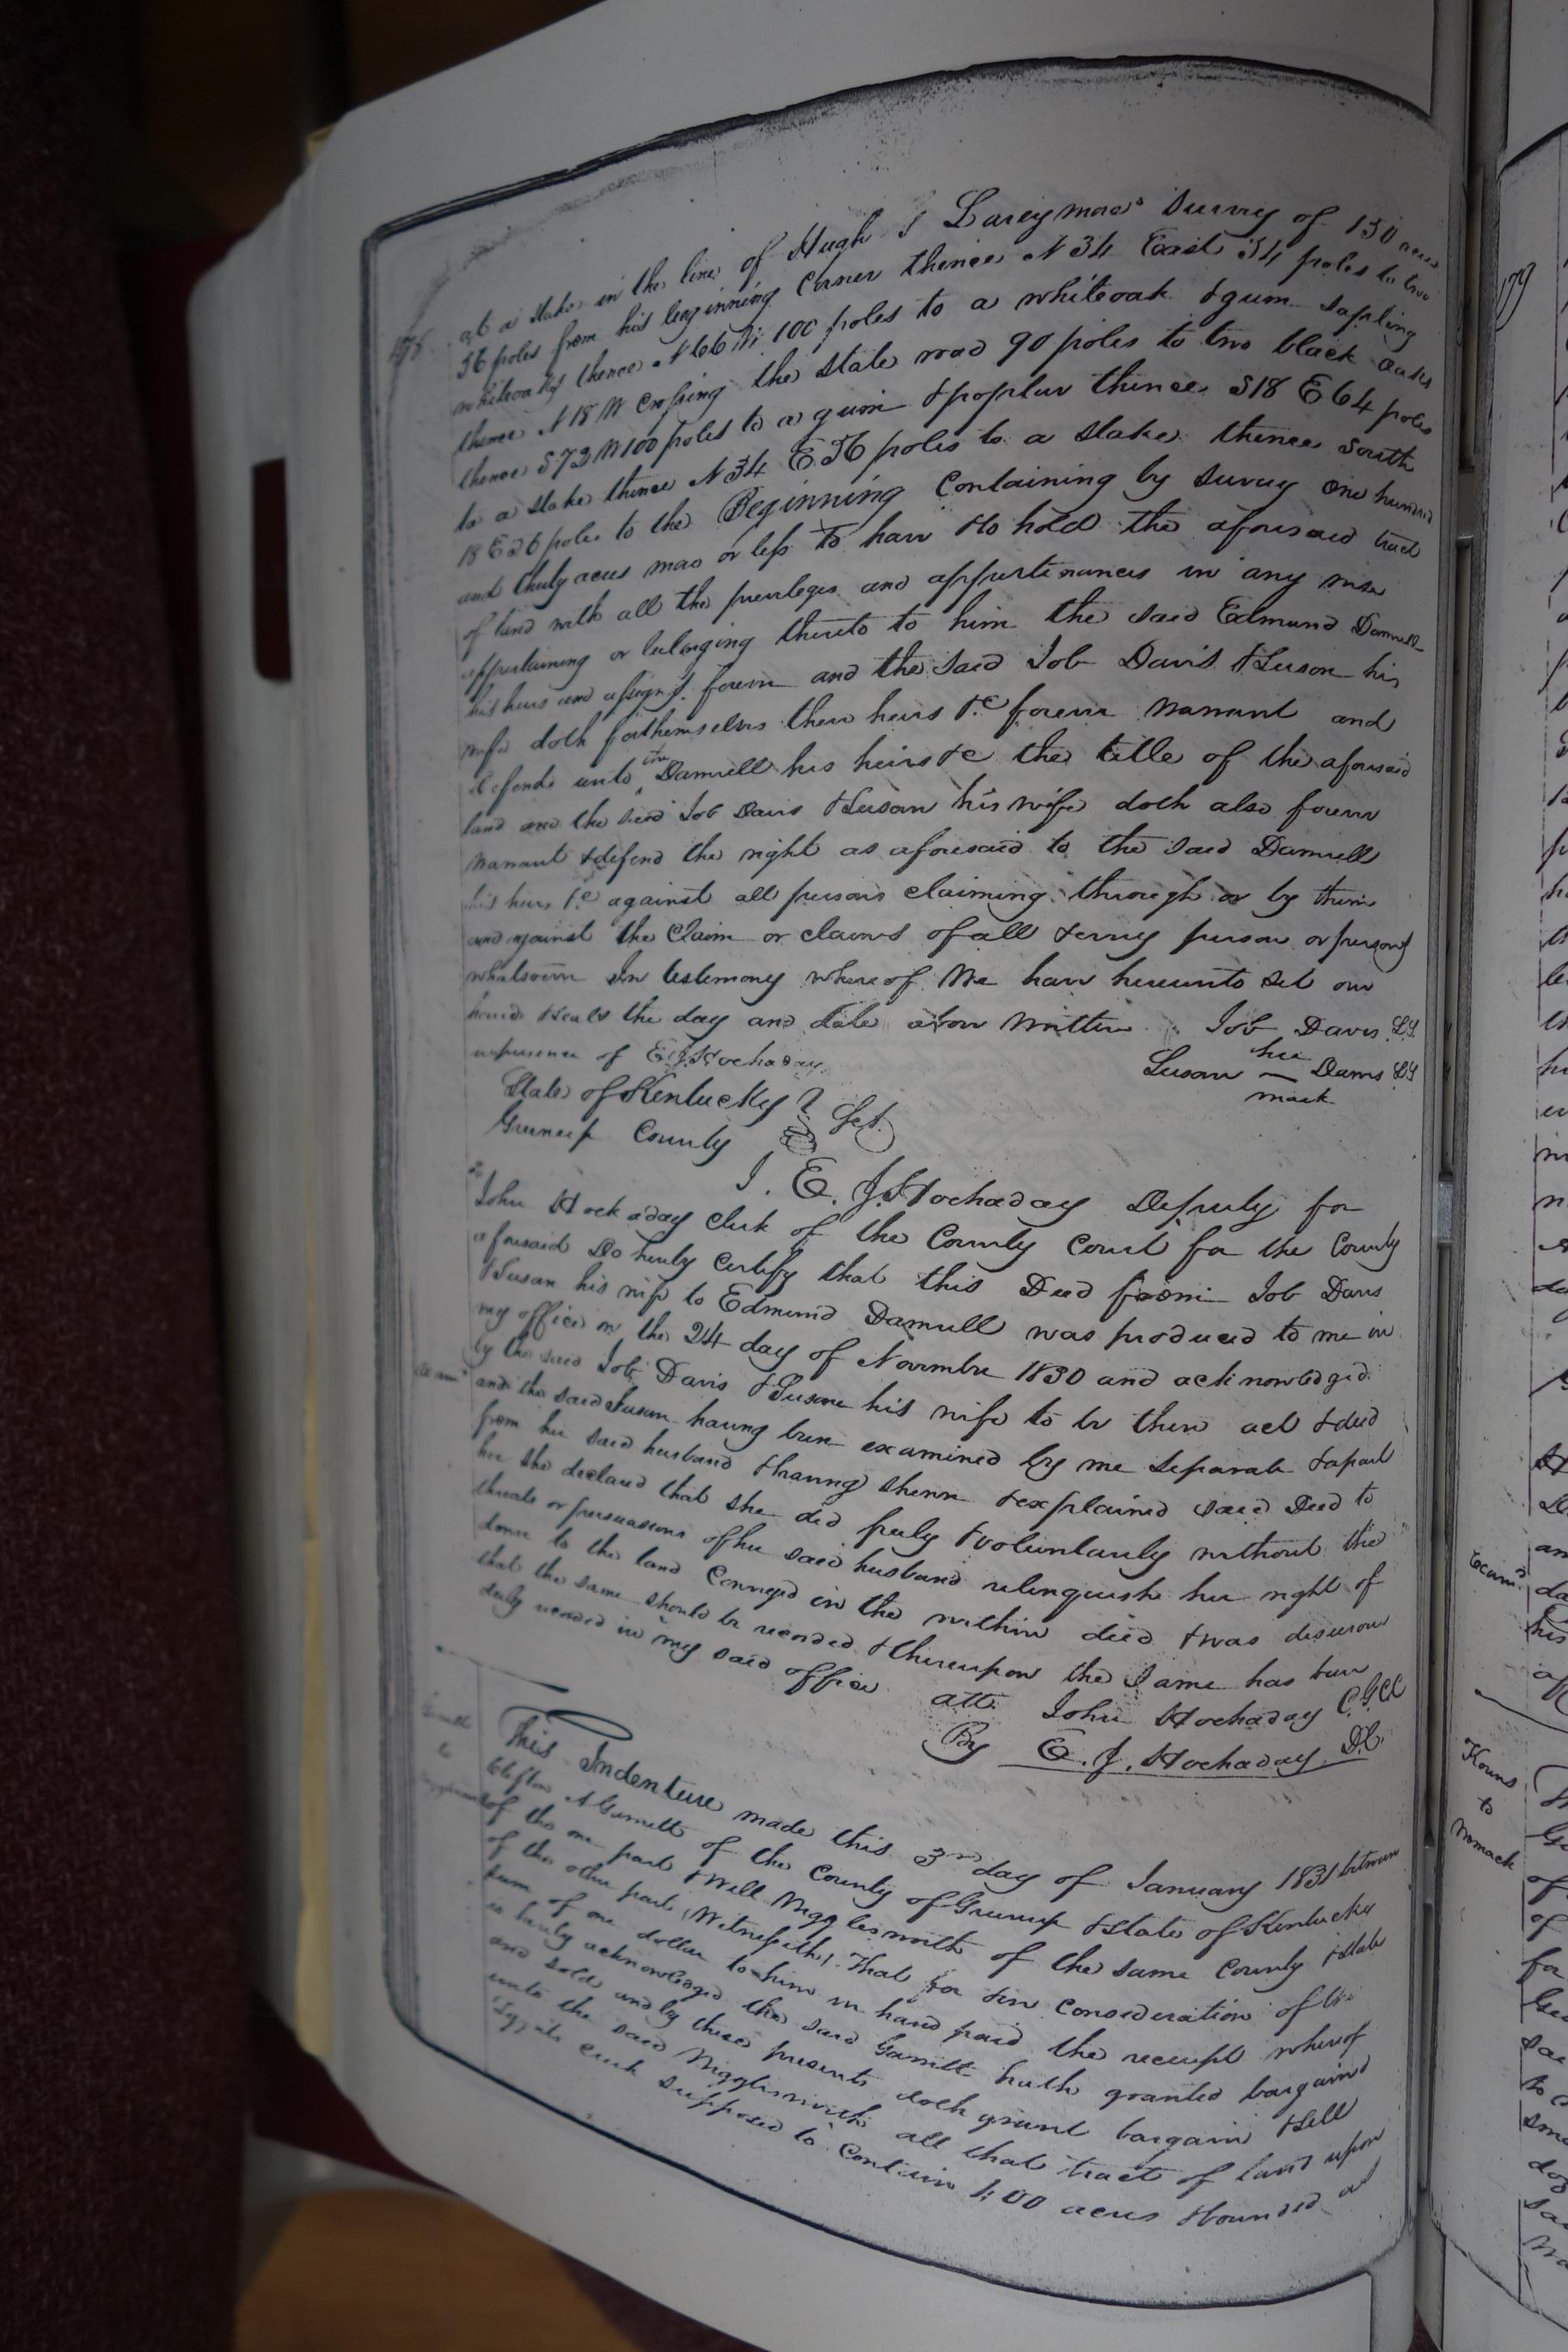 178
at a stake in the line of Hugh S Lareymores Survey of 130 acres
56 poles from his beginning Corner thence N 34 East 54 poles to two
whiteoaks thence N 66 W 100 poles to a whiteoak & gum sapling
thence N 18 W Crossing the state road 90 poles to two black oaks
thence S 72 W 100 poles to a gum & poplar thence S 18 E 64 poles
to a stake thence N 34 E 56 poles to a stake thence South
18 E 26 poles to the Beginning Containing by survey One hundred
and thirty acres mao or less To have & to hold the aforesaid tract
of land with all the previleges and appurtenances in any wise
appertaining or belonging thereto to him the said Edmund Damrell
his heirs and assigns forever and the said Job Davis & Susan his
wife doth for themselves their heirs &c forever Warrant and
defend unto the Damrell his heirs &c the title of the aforesaid
land and the said Job Davis & Susan his wife doth also forever
Warrant & defend the right as aforesaid to the said Damrell
his heirs &c against all persons claiming through or by them
and against the Claim or claims of all & every person or persons
whatsoever In testimony whereof We have hereunto set our
hands & seals the day and date above Written Job Davis LS
in presence of E. J. Hockaday her
Susan — Davis LS
mark
State of Kentucky
Greenup County } Sct.
I. E. J. Hockaday Deputy for
John Hockaday Clerk of the County Court for the County
aforesaid Do hereby Certify that this Deed from Job Davis
& Susan his wife to Edmund Damrell was produced to me in
my office on the 24 day of November 1830 and acknowledged
by the said Job Davis & Susan his wife to be their act & deed
and the said Susan having been examined by me Separate & apart
from her said husband & having shewn & explained said Deed to
her she declared that she did freely & voluntarily without the
threats or persuasions of her said husband relinquish her right of
dower to the land Conveyed in the within deed & was desirous
that the same should be recorded & thereupon the same has been
duly recorded in my said office
att. John Hockaday C.G.C.C
By E. J. Hockaday. D.C.
This Indenture made this 3rd day of January 1831 between
Clifton A Garrett of the County of Greenup & State of Kentucky
of the one part & Will Wigglesworth of the same County & state
of the other part, Witnesseth; That for & in Consideration of the
sum of one dollar to him in hand paid the receipt whereof
is hereby acknowledged the said Garrett hath granted bargained
and sold and by these presents doth grant bargain & sell
unto the said Wigglesworth all that tract of land upon
Tygarts Creek supposed to Contain 400 acres & bounded as
179
Exam'd
Kouns
to
Womack